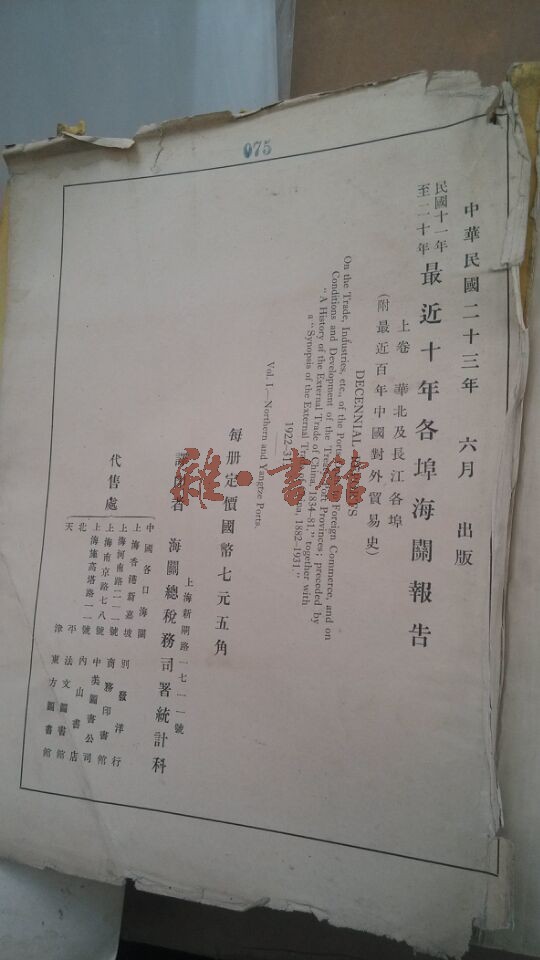 075
中華民國二十三年 六月 出版
民國十一年
至二十年
最近十年各埠海關報告
上卷 華北及長江各埠
(附最近百年中國對外貿易史)
DECENNIAL
On the Trade, Industries, etc., of the Ports Foreign Commerce, and on
Conditions and Development of the Treaty Port Provinces; preceded by
"A History of the External Trade of China, 1834-81," together with
a "Synopsis of the External Trade of China, 1882-1931."
1922-31
Vol. I.—Northern and Yangtze Ports.
每册定價國幣七元五角
上海新閘路一七一一號
海關總稅務司署統計科
代售處
中國各口海關
上海香港新嘉坡 別發洋行
上海河南路二一一號 商務印書館
上海南京路七八號 中美圖書公司
上海施高塔路一一號 內山書店
北平 法文圖書館
天津 東方圖書館
雜·書館